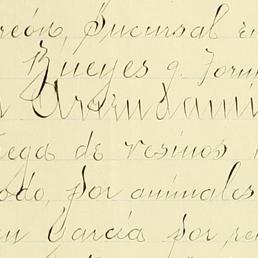 reón, Sucursal en
Bueyes q. Form
Arrendami
ega de vesinos
odo, por animales
n García por re